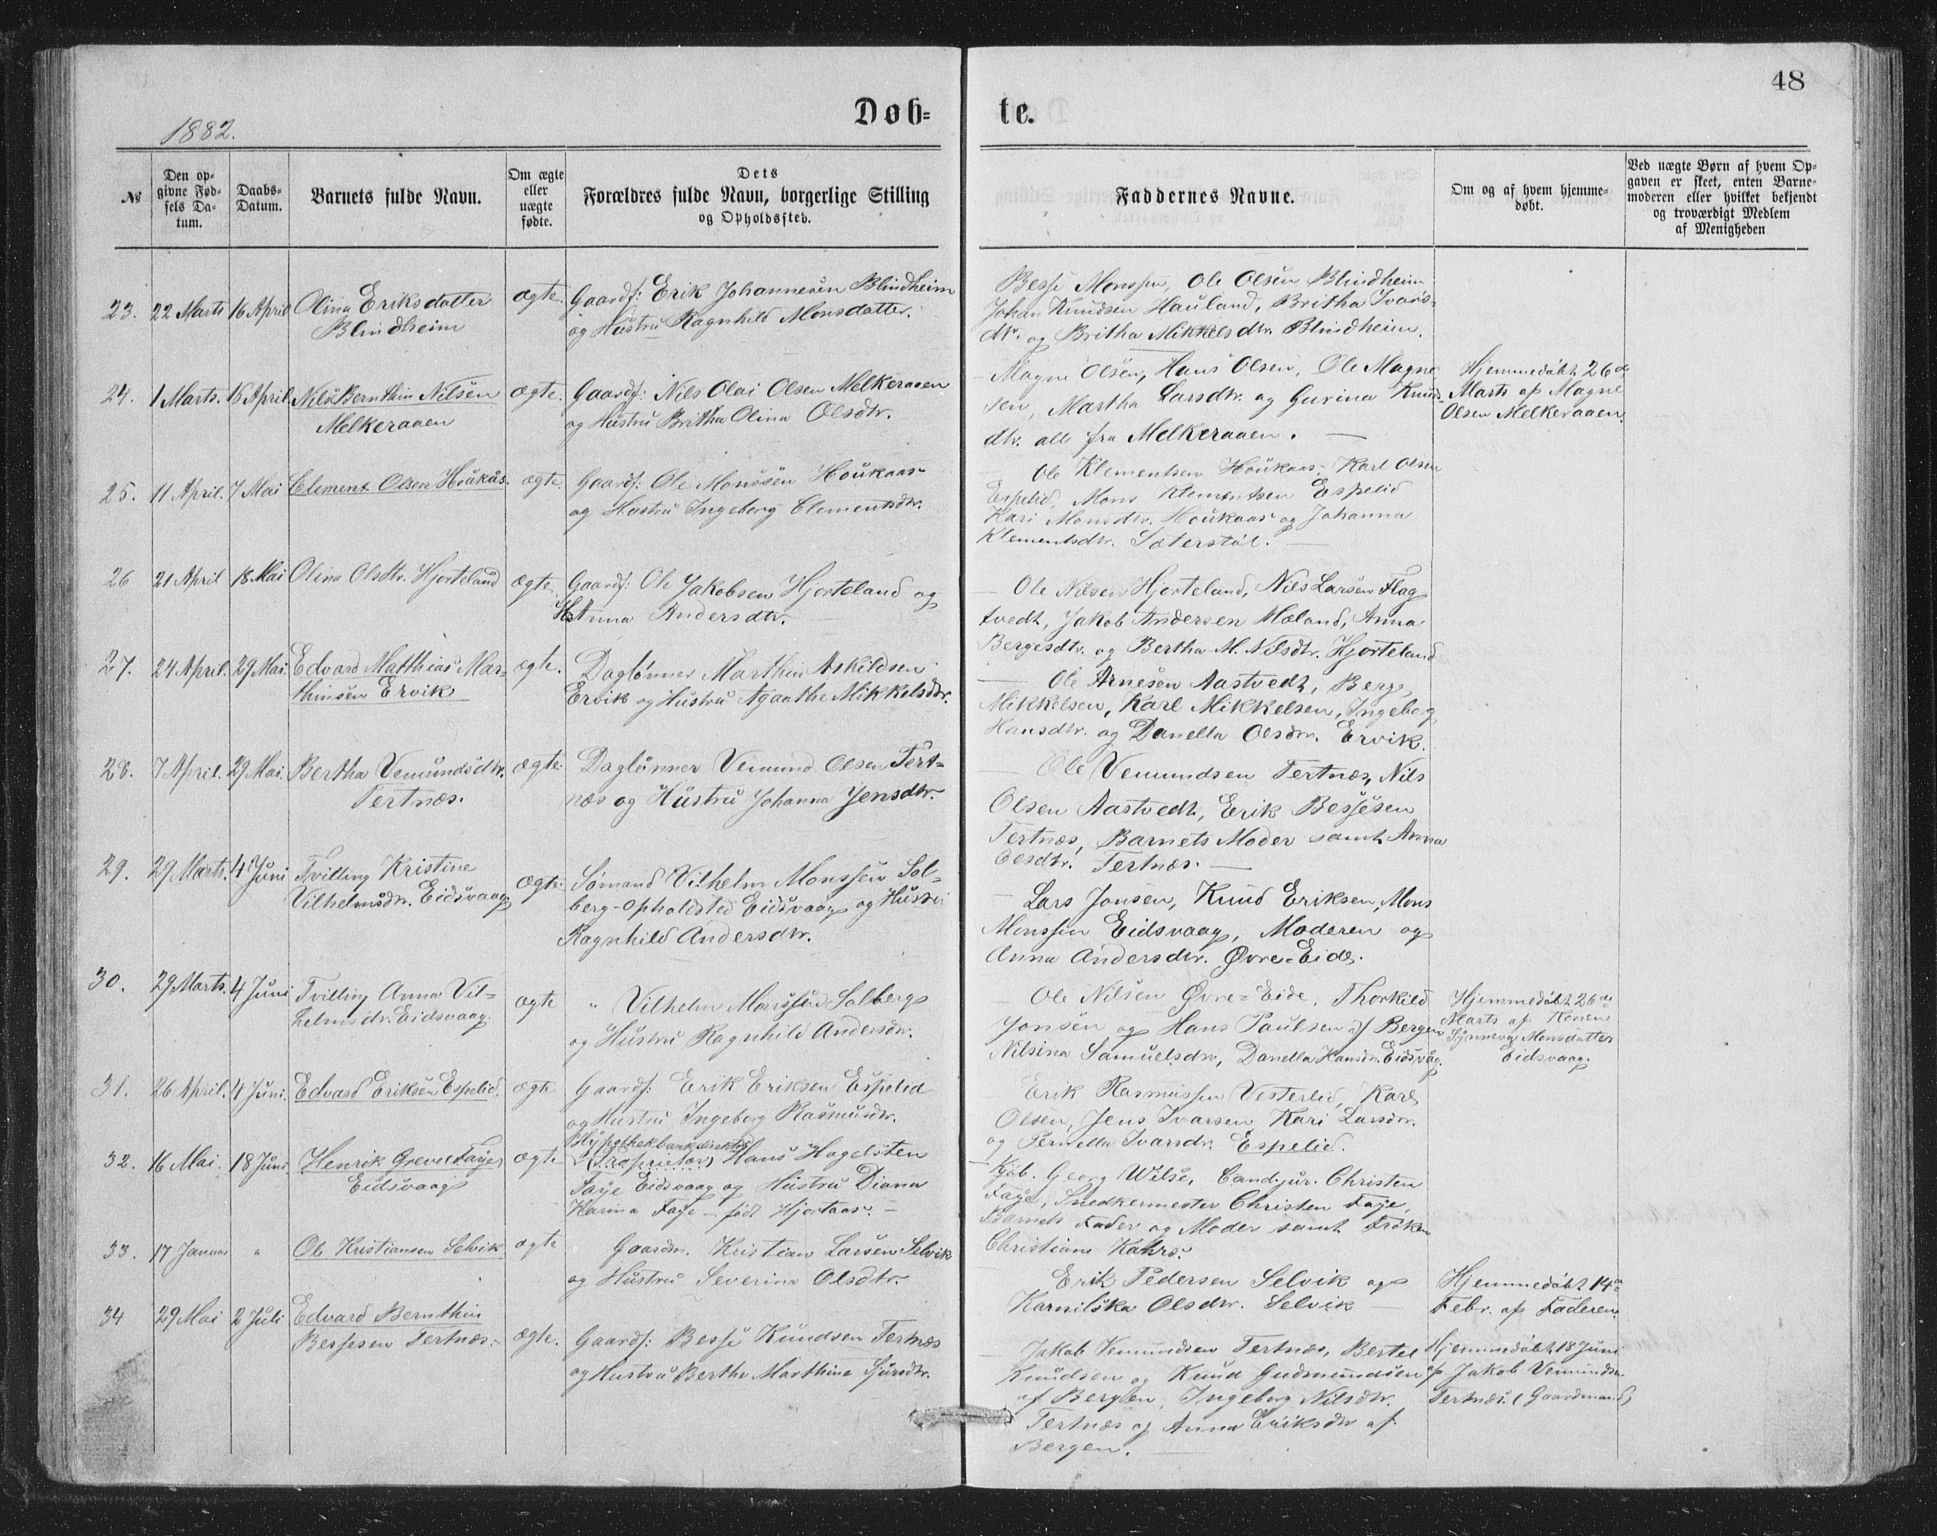 48
Døb=
te.
1882.
№
Den op-
givne Fød-
sels Da-
tum.
Daabs-
Datum.
Barnets fulde Navn.
Om ægte
eller
uægte
fødte.
Dets
Forældres fulde Navn, borgerlige Stilling
og Opholdssted.
Faddernes Navne.
Om og af hvem hjemme-
døbt.
Ved uægte Børn af hvem Op-
gaven er skeet, enten Barne-
moderen eller hvilket bekjendt
og troværdigt Medlem
af Menigheden
23. 22 Marts 16 April Olina Eriksdatter
Blindheim
ægte. Gaardf: Erik Johannesen Blindheim
og Hustru Ragnhild Monsdatter.
Besse Monsen, Ole Olsen Blindheim
Johan Knudsen Hauland, Britha Ivars-
dtr. og Britha Mikkelsdtr. Blindheim.
24. 1 Marts. 16 April Nils Bernthin Nilsen
Melkeraaen
ægte. Gaardf: Nils Olai Olsen Melkeraaen
og Hustru Britha Olina Olsdtr.
Magne Olsen, Hans Olsen, Ole Magne
sen, Martha Larsdtr. og Gurina Knuds
dtr. all fra Melkeraaen.
Hjemmedøbt 26de
Marts af Magne
Olsen Melkeraaen.
25. 11 April. 7 Mai Clement Olsen Houkås.
ægte. Gaardf: Ole Monssen Houkaas
og Hustru Ingeborg Clementsdtr.
Ole Klementsen Houkaas, Karl Olsen
Espelid, Mons Klementsen Espelid
Kari Monsdtr. Houkaas og Johanna
Klementsdtr. Sæterstøl.
26 21 April 18 Mai Olina Olsdtr. Hjorteland
ægte. Gaardf: Ole Jakobsen Hjorteland og
H. Anna Andersdtr.
Ole Nilsen Hjorteland, Nils Larsen Flag
tvedt, Jakob Andersen Mæland, Anna
Bergesdtr. og Bertha M. Nilsdtr. Hjorteland
27. 24 April. 29 Mai. Edvard Matthias Mar-
thinsen Ervik
ægte. Daglønner Marthin Askildsen
Ervik og Hustru Agaathe Mikkelsdtr.
Ole Arnesen Aastvedt, Berge
Mikkelsen, Karl Mikkelsen, Ingeborg
Hansdtr. og Danella Olsdtr. Ervik.
28. 7 April. 29 Mai. Bertha Vemundsdtr.
Tertnæs.
ægte. Dagløner Vemund Olsen Tert-
næs og Hustru Johanna Jensdtr.
Ole Vemundsen Tertnæs, Nils
Olsen Aastvedt, Erik Bessesen
Tertnæs, Barnets Moder samt Anna
Olsdtr. Tertnæs.
29. 29 Marts. 4 Juni Tvilling Kristine
Vilhelmsdtr. Eidsvaag
ægte. Sømand Vilhelm Monssen Sol-
berg - Opholdsted Eidsvaag og Hustru
Ragnhild Andersdtr.
Lars Jonsen, Knud Eriksen, Mons
Monssen Eidsvaag, Moderen og
Anna Andersdtr. Øvre-Eide.
30. 29 Marts. 4 Juni Tvilling Anna Vil-
helmsdtr. Eidsvaag.
ægte " Vilhelm Monssen Solberg
og Hustru Ragnhild Andersdtr.
Ole Nilsen Øvre=Eide, Thorkild
Jonsen og Hans Paulsen af Bergen
Nilsina Samuelsdtr, Danella Hansdtr. Eidsvåg.
Hjemmedøbt 26de
Marts af Konen
Synneva Monsdatter
Eidsvaag.
31. 26 April. 4 Juni. Edvard Eriksen Espelid.
ægte Gaardf: Erik Eriksen Espelid
og Hustru Ingeborg Rasmusdtr.
Erik Rasmussen Vesterlid, Karl
Olsen, Jens Ivarsen Kari Larsdtr.
og Pernella Ivarsdtr. Espelid.
32. 16 Mai. 18 Juni Henrik Greve Faye
Eidsvaag
ægte Hypothekbankdirektør
(Proprietær) Hans Hagelsten
Faye Eidsvaag og Hustru Diana
Karina Faye - født Hjortaas.
Kjøb. Georg Wilse, Candjur. Christen
Faye, Snedkermester Christen Faye,
Barnets Fader og Moder samt Frøken
Christiane Kahrs.
33. 17 Januar " Ole Kristiansen Selvik
ægte Gaardm. Kristian Larsen Selvik
og Hustru Severina Olsdtr.
Erik Pedersen Selvik og
Karnilska Olsdtr. Selvik
Hjemmedøbt 14de
Febr. af Faderen.
34 29 Mai 2 Juli Edvard Bernthin
Bessesen Tertnæs.
ægte. Gaardf: Besse Knudsen Tertnæs
og Hustru Berthe Marthine Sjursdtr.
Jakob Vemundsen Tertnæs, Bertel
Knudsen og Knud Gudmundsen
af Bergen, Ingeborg Nilsdtr.
Tertnæs og Anna Eriksdtr af
Bergen.
Hjemmedøbt 18 Juni
af Jakob Vemundsen
Tertnæs. (Gaardmand)